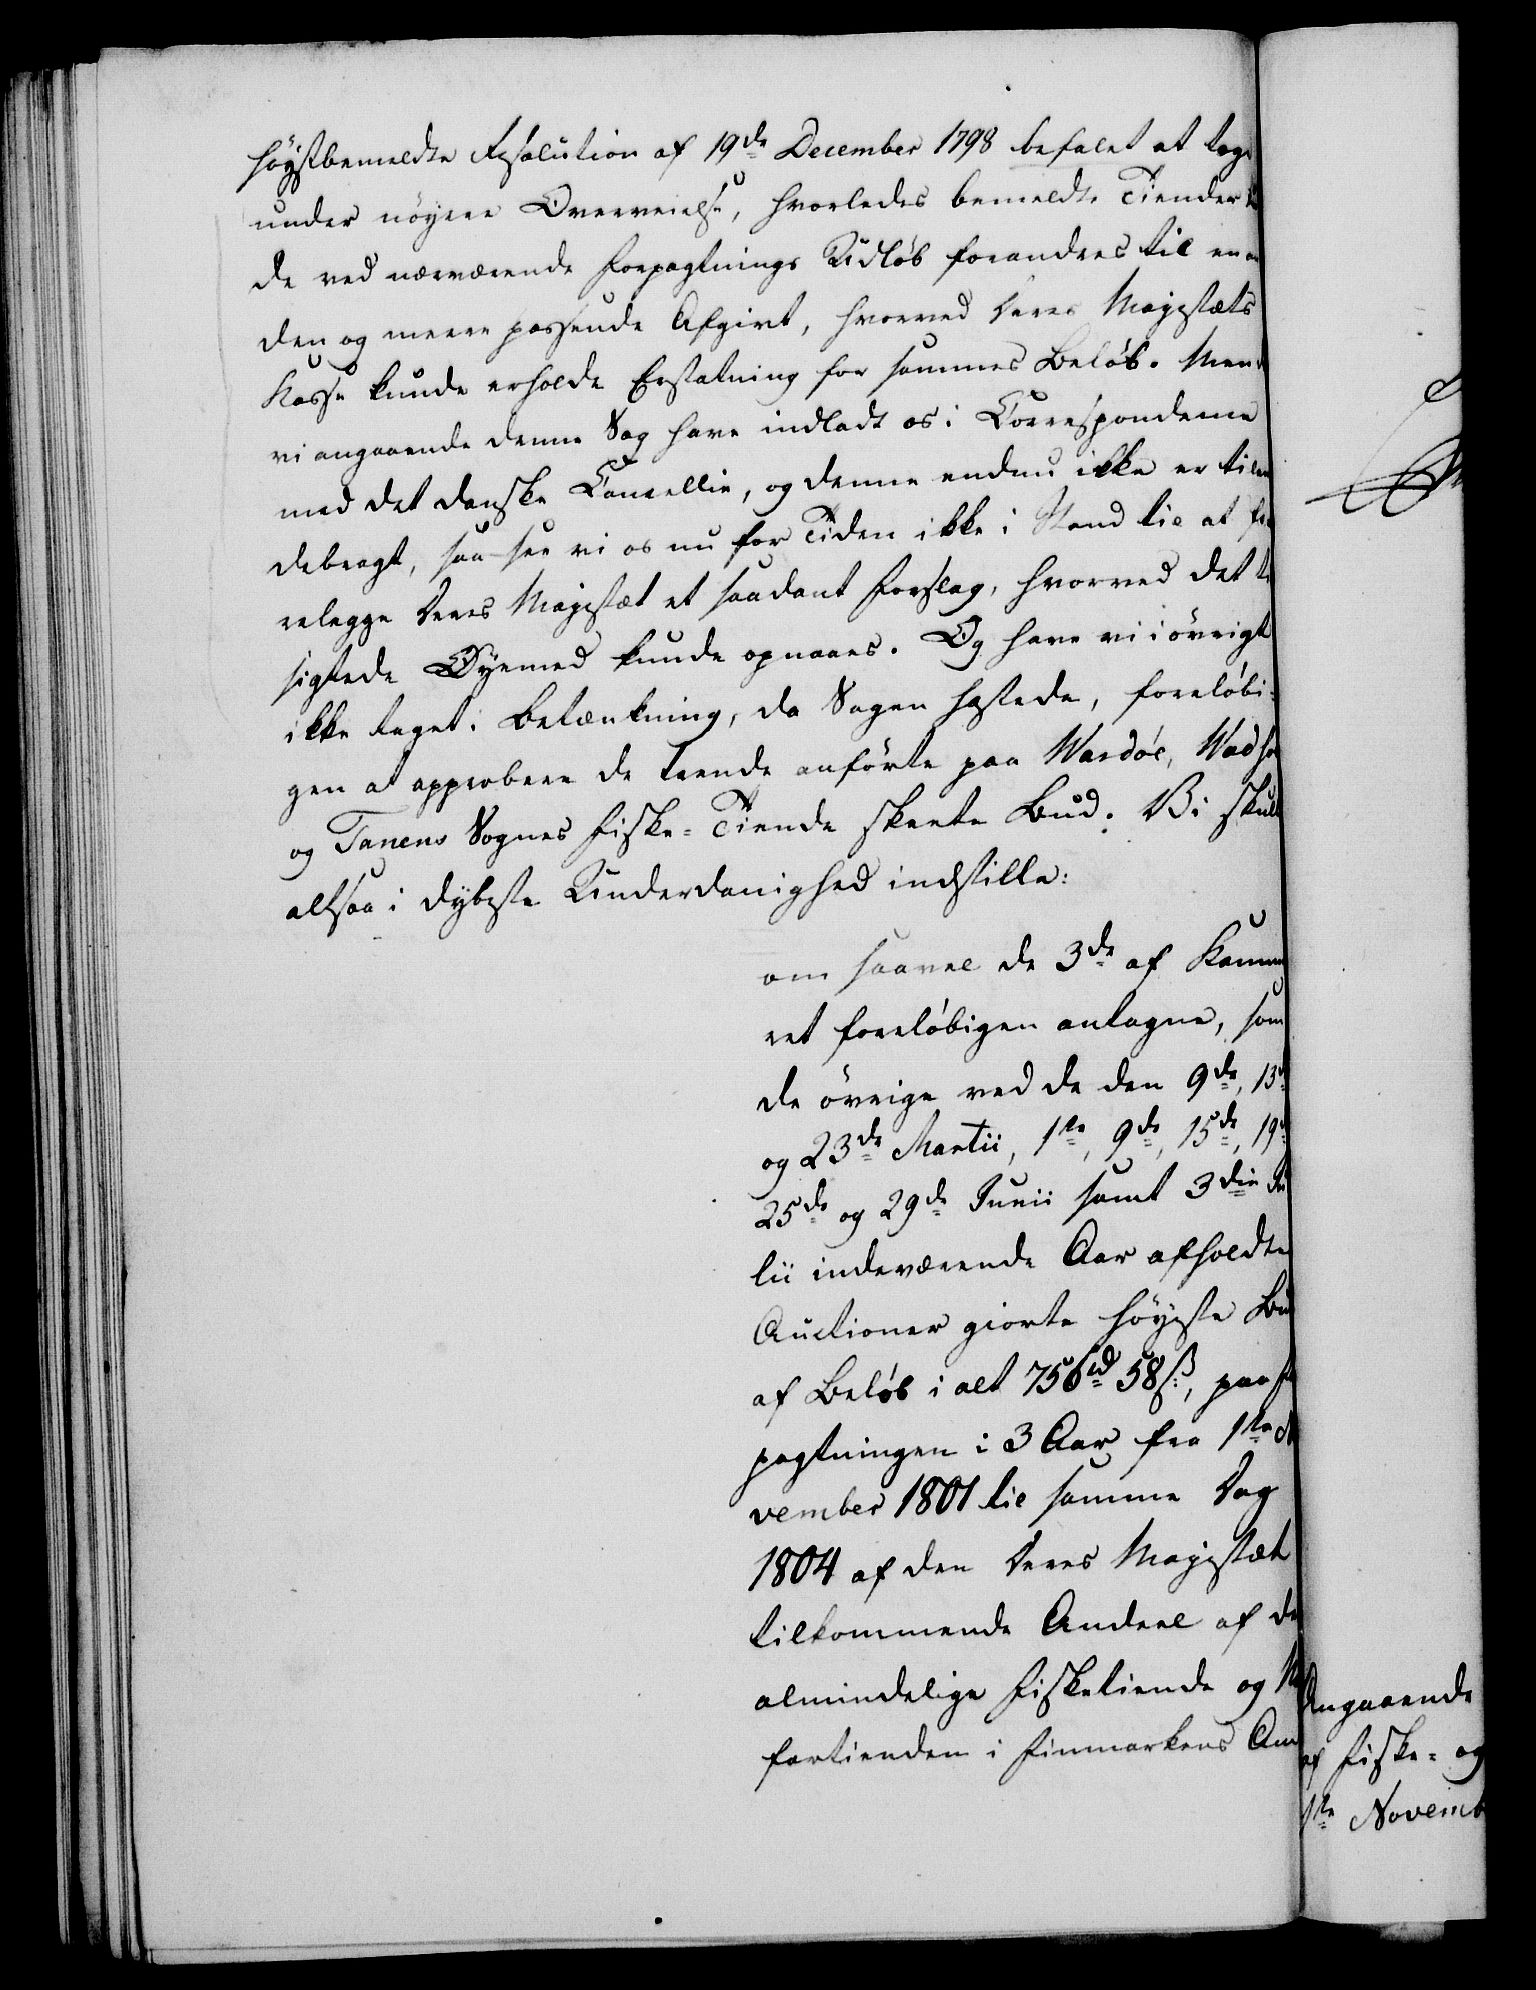 höystbemeldte Resolution af 19de December 1798 befalet at tage
under nöyere Overveielse, hvorledes bemeldte Tiender
de ved nærværende Forpagtnings Udløb forandres til en an
den og meere passende Afgivt, hvorved Deres Majestæts
Kasse kunde erholde Erstatning for sammes Beløb. Men
vi angaaende denne Sag have indladt os i Correspondence
med det danske Cancellie, og denne endnu ikke er tilen
debragt, saa see vi os nu for Tiden ikke i Stand til at fo
relegge Deres Majestæt et saadant Forslag, hvorved det til
sigtede Øyemed kunde opnaaes. Og have vi i övrigt
ikke taget i Betænkning, da Sagen hastede, foreløbi-
gen at approbere de trende anførte paa Wardöe, Wadsöe
og Tanens Sognes Fiske-Tiende skeete Bud. Vi skulle
altsaa i dybeste Underdanighed indstille:
om saavel de 3de af Kamme
ret foreløbigen antagne, som
de övrige ved de den 9de, 13de
og 23de Martii, 1te, 9de, 15de, 19de
25de og 29de Junii samt 3die Ju
lii indeværende Aar afholdte
Auctioner giorte höyeste Bud
af Beløb i alt 756rd 58ß, paa For
pagtningen i 3 Aar fra 1ste No
vember 1801 til samme Dag
1804 af den Deres Majestæt
tilkommende Andeel af de
almindelige Fisketiende og
fartienden i Finmarkens Am
Angaaende
af Fiske- og
1te Novemb